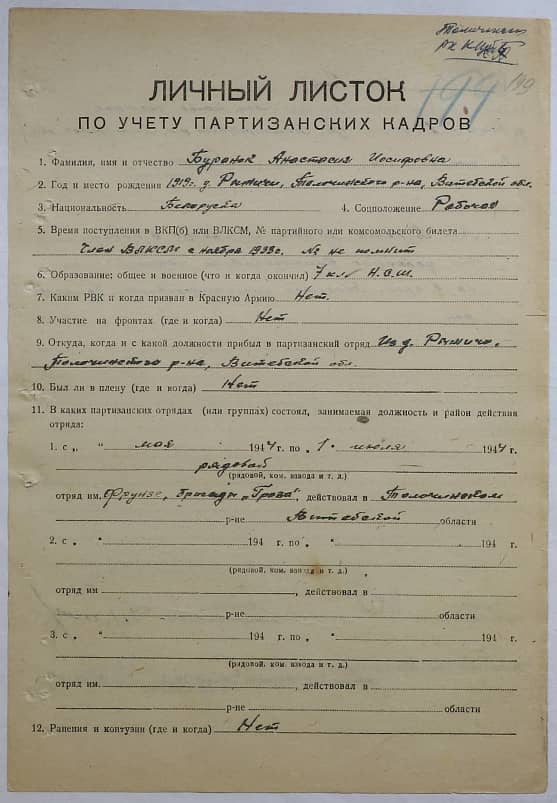 Толочинский
РК КП(б)Б
199 199
ЛИЧНЫЙ ЛИСТОК
ПО УЧЕТУ ПАРТИЗАНСКИХ КАДРОВ
1. Фамилия, имя и отчество Буранок Анастасия Иосифовна
2. Год и место рождения 1919г. д. Рыжики, Толочинского р-на, Витебской обл.
3. Национальность Белоруска 4. Соцположение Рабочая
5. Время поступления в ВКП(б) или ВЛКСМ, № партийного или комсомольского билета
Член ВЛКСМ с ноября 1938г. № не помнит
6. Образование: общее и военное (что и когда окончил) 7 кл. Н.С.Ш.
7. Каким РВК и когда призван в Красную Армию Нет.
8. Участие на фронтах (где и когда) Нет
9. Откуда, когда и с какой должности прибыл в партизанский отряд Из д.
Толочинского р-на, Витебской обл.
10. Был ли в плену (где и когда) Нет
11. В каких партизанских отрядах (или группах) состоял, занимаемая должность и район действия
отряда:
1. с „ “ мая 1944 г. по „1“ июля 1944 г.
рядовой
(рядовой, ком. взвода и т. д.)
отряд им. Фрунзе, бригады „Гроза“, действовал в Толочинском
р-не Витебской области
2. с „ “ 194 г. по „ “ 194 г.
(рядовой, ком. взвода и т. д.)
отряд им , действовал в
р-не области
3. с „ “ 194 г. по „ “ 194 г.
(рядовой, ком. взвода и т. д.)
отряд им. , действовал в
р-не области
12. Ранения и контузии (где и когда) Нет